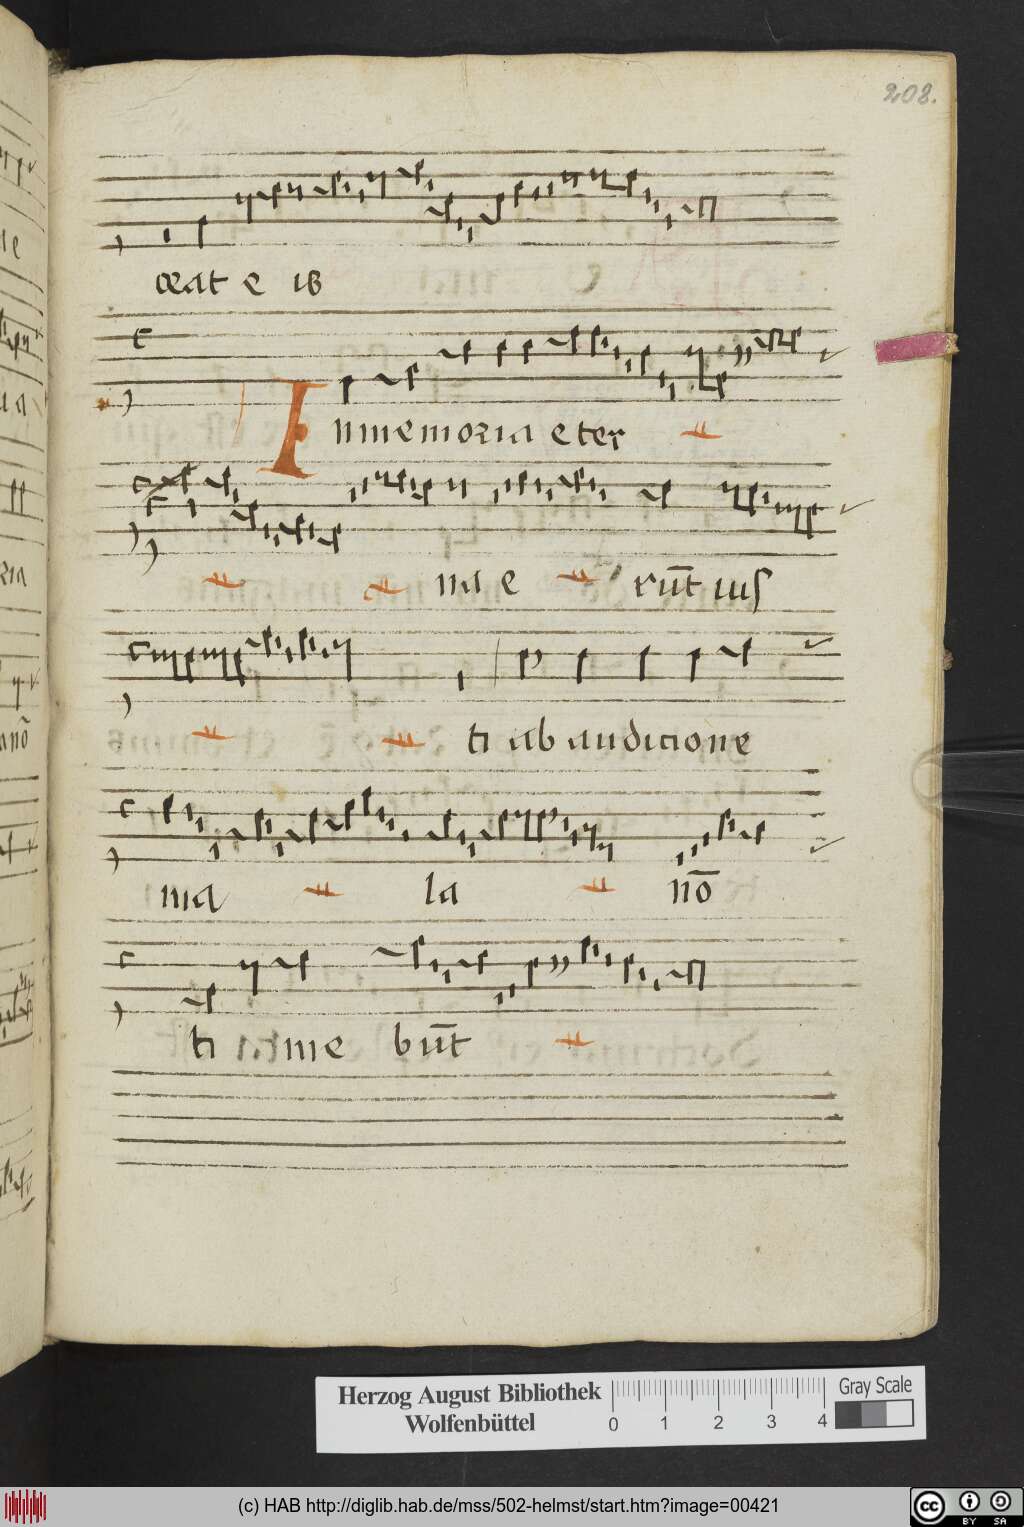 208.
ceat e is
Inmemoria eter
na e rūt ius
ti ab audicione
ma la nō
ti me būt
Herzog August Bibliothek
Wolfenbüttel
0 1 2 3 4
Gray Scale
(c) HAB http://diglib.hab.de/mss/502-helmst/start.htm?image=00421
cc BY SA